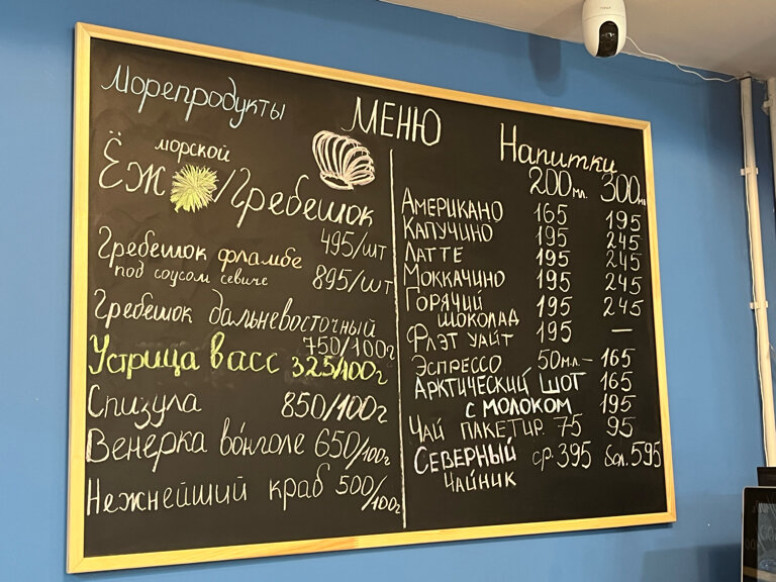 МЕНЮ
Морепродукты
морской
Ёж /Гребешок
495/шт
Гребешок фламбе
под соусом севиче 895/шт
Гребешок дальневосточный
750/100г
Устрица васс 325/100г
Спизула 850/100г
Венерка во́нголе 650/100г
Нежнейший краб 500/100г
Напитки
200мл. 300мл
Американо 165 195
Капучино 195 245
Латте 195 245
Моккачино 195 245
Горячий
шоколад 195 245
Флэт уайт 195 —
Эспрессо 50мл. – 165
Арктический шот 165
с молоком 195
Чай пакетир. 75 95
Северный ср. 395 бол. 595
чайник